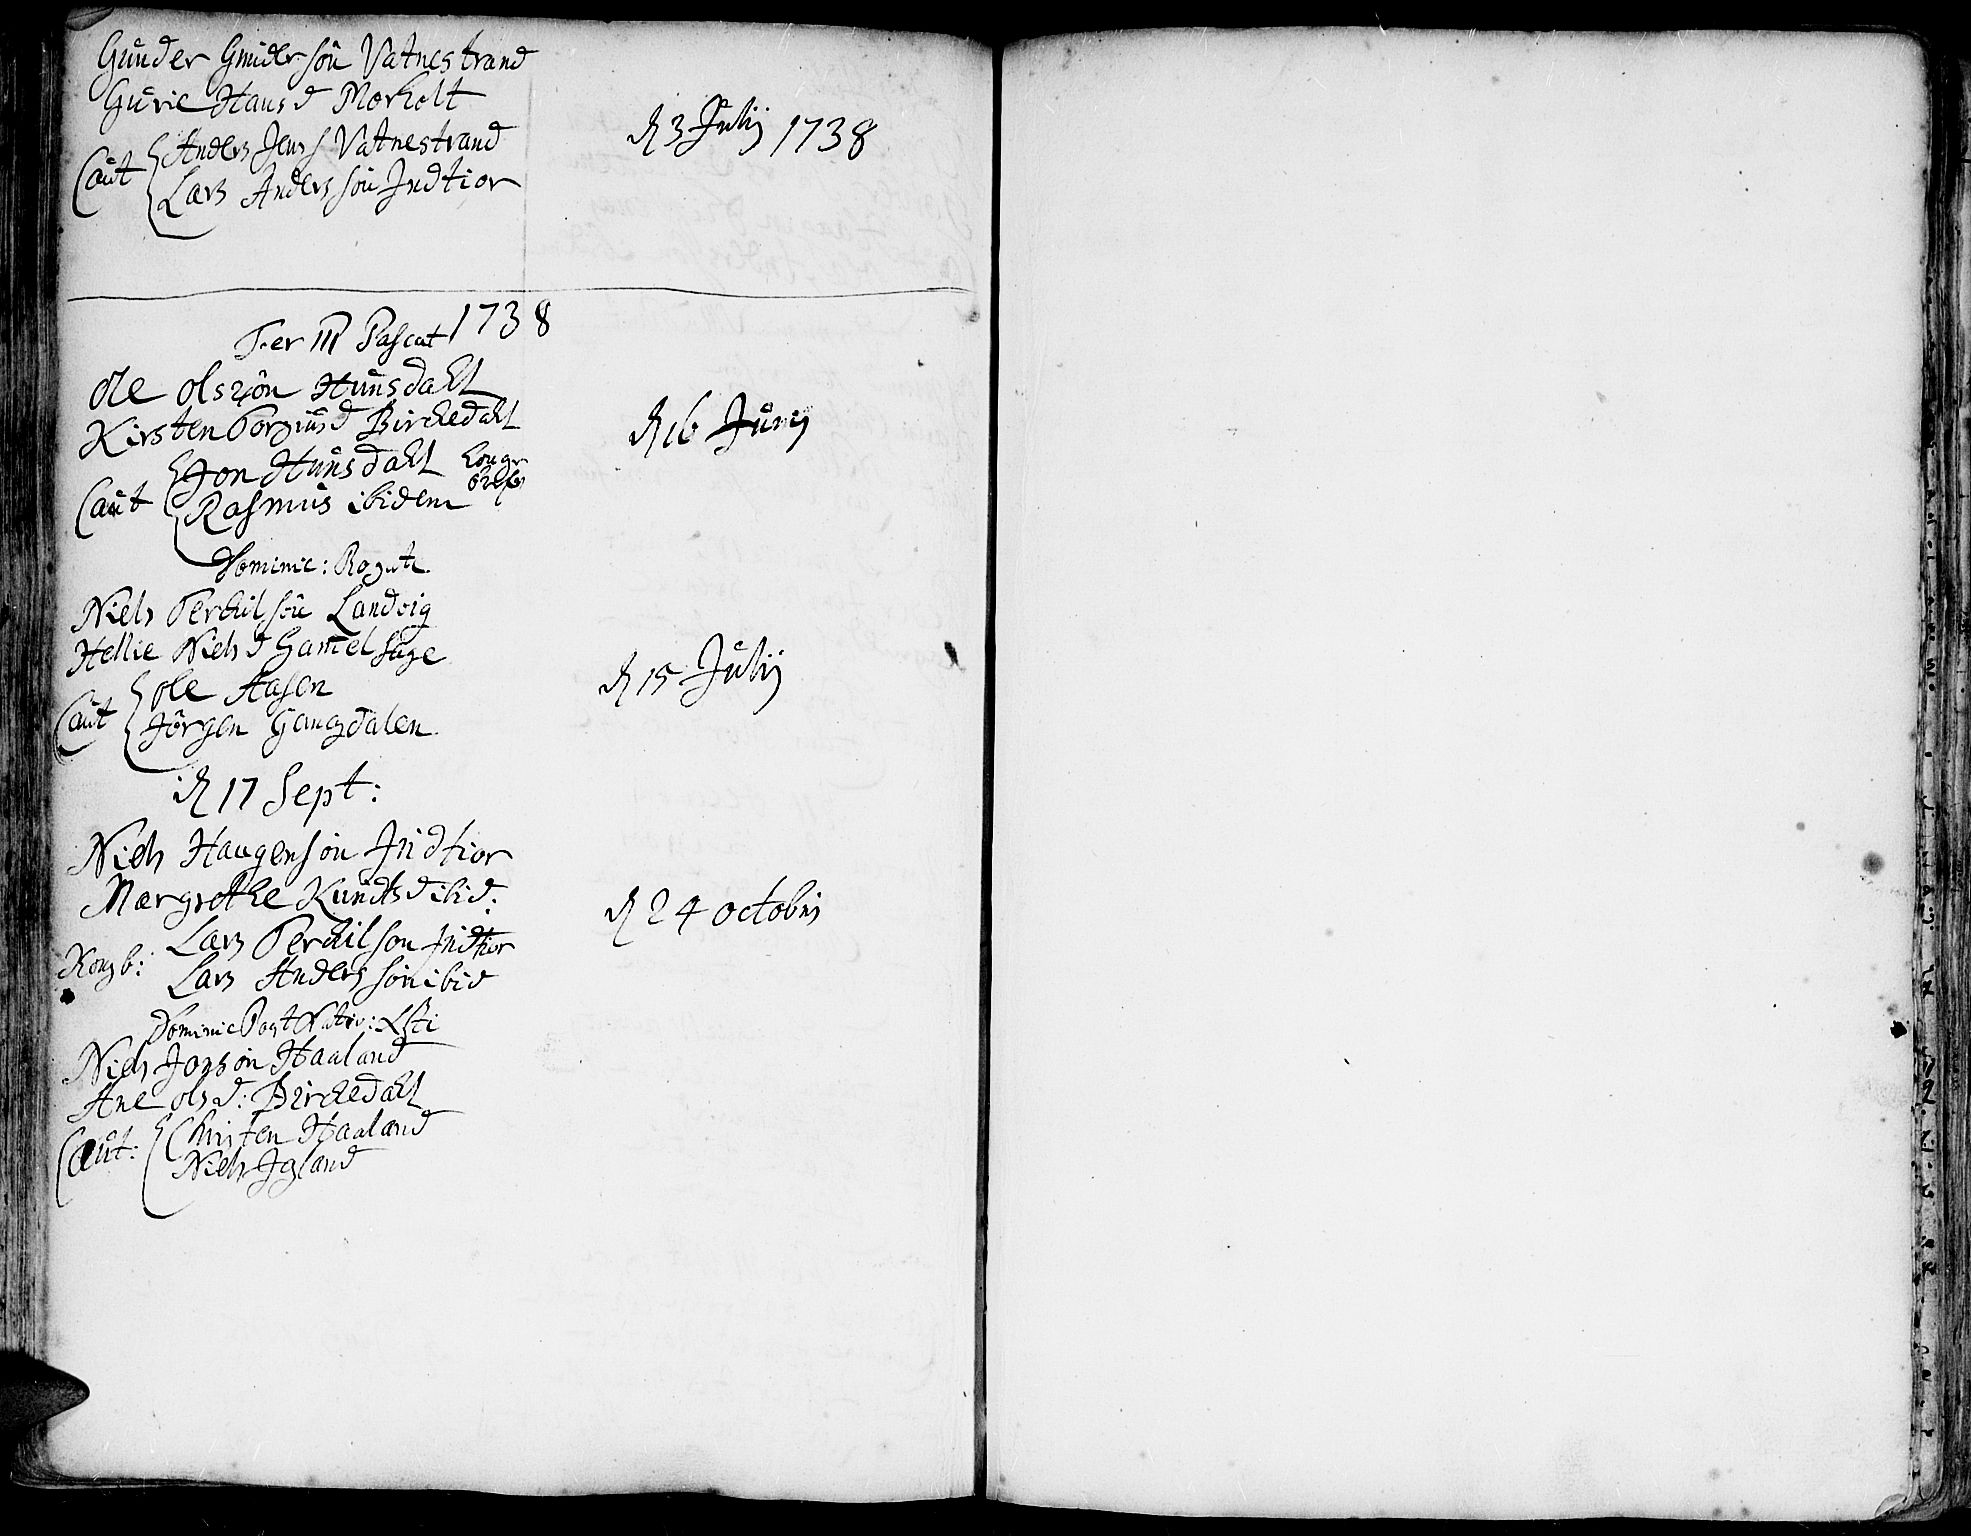 Gunder Gundersøn Vatnestrand
Gurie Hans d Morholt
Caut Anders Jens S Vatnestrand
Lars Anderssøn Indtiør
d 3 Julij 1738
Fer III Pascat 1738
Ole Olszøn Hunsdahl
Kirsten d Birchedahl
Caut Jon Hunsdahl
Rasmus ibidem
d 16 Junij
Dominic: Rogate
Niels Terchilsøn Landvig
Hellie Niels d Gamelsuge
Caut Ole Aasen
Jørgen Gangdalen
d 15 Julij
d 17 Sept:
Niels Haugensøn Indtiør
Margrethe Kundts d ibid:
Kongb: Lars Terchilsøn Indtiør
Lars Anderssøn ibid
d 24 octobris
Dominic Post Nativ: Xsti
Niels Jonsøn Haaland
Ane Ols d: Birchedahl
Caut: Christen Haaland
Niels Igland